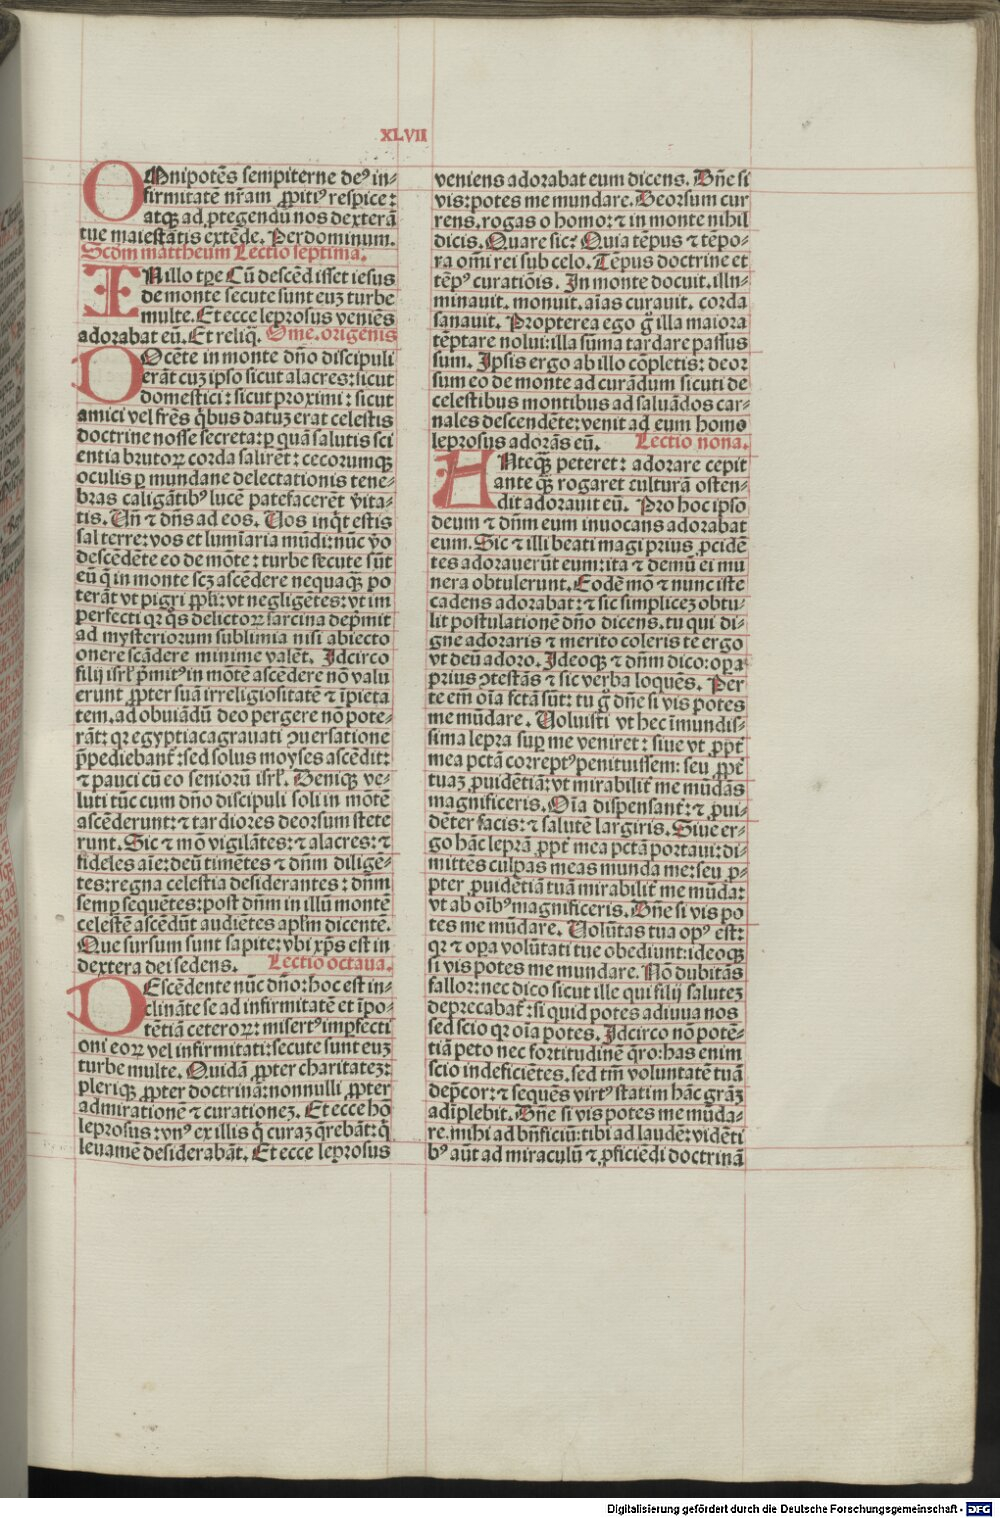 XLVII
OMnipotēs sempiterne deꝰ in-
firmitatē nr̄am ꝓpitiꝰ respice:
atqꝫ ad ꝓtegendū nos dexterā
tue maiestatis extēde. Per dominum.
Scdm mattheum Lectio septima.
IN illo tꝑe Cū descēdisset iesus
de monte secute sunt euꝫ turbe
multe. Et ecce leprosus veniēs
adorabat eū. Et reliq̄. Ome. origenis
DOcēte in monte dn̄o discipuli
erāt cuꝫ ipso sicut alacres: sicut
domestici: sicut proximi: sicut
amici vel frēs q̄bus datuꝫ erat celestis
doctrine nosse secreta: ꝑ quā salutis sci
entia brutoꝝ corda salirēt: cecorumqꝫ
oculis ꝑ mundane delectationis tene-
bras caligātibꝰ lucē patefacerēt vita-
tis. Vn̄ ⁊ dn̄s ad eos. Uos inq̄t estis
sal terre: vos et lumīaria mūdi: nūc ṽo
descēdēte eo de mōte: turbe secute sūt
eū q̄ in monte scꝫ ascēdere nequaqꝫ po
terāt vt pigri ꝓpl̄i: vt negligētes: vt im
perfecti qꝛ q̄s delictoꝝ sarcina dep̄mit
ad mysteriorum sublimia nisi abiecto
onere scādere minime valēt. Idcirco
filij isrl̄ p̄mitꝰ in mōtē ascēdere nō valu
erunt ꝓpter suā irreligiositatē ⁊ īpieta
tem. ad obuiādū deo pergere nō pote-
rāt: qꝛ egyptiaca grauati ꝯuersatione
p̄pediebant̄: sed solus moyses ascēdit:
⁊ pauci cū eo seniorū isrl̄. Deniqꝫ ve-
luti tūc cum dn̄o discipuli soli in mōtē
ascēderunt: ⁊ tardiores deorsum stete
runt. Sic ⁊ mō vigilātes: ⁊ alacres: ⁊
fideles aīe: deū timētes ⁊ dn̄m diligē-
tes: regna celestia desiderantes: dn̄m
semꝑ sequētes: post dn̄m in illū montē
celestē ascēdūt audiētes apl̄m dicentē.
Que sursum sunt sapite: vbi xp̄s est in
dextera dei sedens. Lectio octaua.
DEscēdente nūc dn̄o: hoc est in-
clināte se ad infirmitatē et īpo-
tētiā ceteroꝝ: misertꝰ imꝑfecti
oni eoꝝ vel infirmitati: secute sunt euꝫ
turbe multe. Quidā ꝓpter charitateꝫ:
pleriqꝫ ꝓpter doctrinā: nonnulli ꝓpter
admirationē ⁊ curationeꝫ. Et ecce hō
leprosus: vnꝰ ex illis q̄ curaꝫ q̄rebāt: q̄
leuamē desiderabāt. Et ecce leprosus
veniens adorabat eum dicens. Dn̄e si
vis: potes me mundare. Deorsum cur
rens, rogas o homo: ⁊ in monte nihil
dicis. Quare sic? Quia tēpus ⁊ tēpo-
ra om̄i rei sub celo. Tēpus doctrine et
tēpꝰ curatiōis. In monte docuit. illu-
minauit. monuit. aīas curauit. corda
sanauit. Propterea ego ḡ illa maiora
tēptare nolui: illa sūma tardare passus
sum. Ipsis ergo ab illo cōpletis: deor
sum eo de monte ad curādum sicuti de
celestibus montibus ad saluādos car-
nales descendēte: venit ad eum homo
leprosus adorās eū. Lectio nona.
ANteqꝫ̄ peteret: adorare cepit
ante qꝫ̄ rogaret culturā osten-
dit adorauit eū. Pro hoc ipso
deum ⁊ dn̄m eum inuocans adorabat
eum. Sic ⁊ illi beati magi prius ꝓcidē
tes adorauerūt eum: ita ⁊ demū ei mu
nera obtulerunt. Eodē mō ⁊ nunc iste
cadens adorabat: ⁊ sic simpliceꝫ obtu-
lit postulationē dn̄o dicens. tu qui di-
gne adoraris ⁊ merito coleris te ergo
vt deū adoro. Ideoqꝫ ⁊ dn̄m dico: oꝑa
prius ꝯtestās ⁊ sic verba loquēs. Per
te em̄ oīa fctā sūt: tu ḡ dn̄e si vis potes
me mūdare. Uoluisti vt hec īmundis-
sima lepra suꝑ me veniret: siue vt ꝓpt̄
mea pctā correptꝰ penituissem: seu ꝓpt̄
tuaꝫ ꝓuidētiā: vt mirabilit̄ me mūdās
magnificeris. Oīa dispensant̄: ⁊ ꝓui-
dēter facis: ⁊ salutē largiris. Siue er-
go hāc leprā ꝓpt̄ mea pctā portaui: di-
mittēs culpas meas munda me: seu ꝓ-
pter ꝓuidētiā tuā mirabilit̄ me mūda:
vt ab oībꝰ magnificeris. Dn̄e si vis po
tes me mūdare. Uolūtas tua opꝰ est:
qꝛ ⁊ oꝑa volūtati tue obediunt: ideoqꝫ
si vis potes me mundare. Nō dubitās
fallor: nec dico sicut ille qui filij saluteꝫ
deprecabat̄: si quid potes adiuua nos
sed scio qꝛ oīa potes. Idcirco nō potē-
tiā peto nec fortitudinē q̄ro: has enim
scio indeficiētes. sed tm̄ voluntatē tuā
dep̄cor: ⁊ sequēs virtꝰ statim hāc gr̄aꝫ
adīplebit. Dn̄e si vis potes me mūda-
re. mihi ad bn̄ficiū: tibi ad laudē: vidēti
bꝰ aūt ad miraculū ⁊ ꝓficiēdi doctrinā
Digitalisierung gefördert durch die Deutsche Forschungsgemeinschaft - DFG